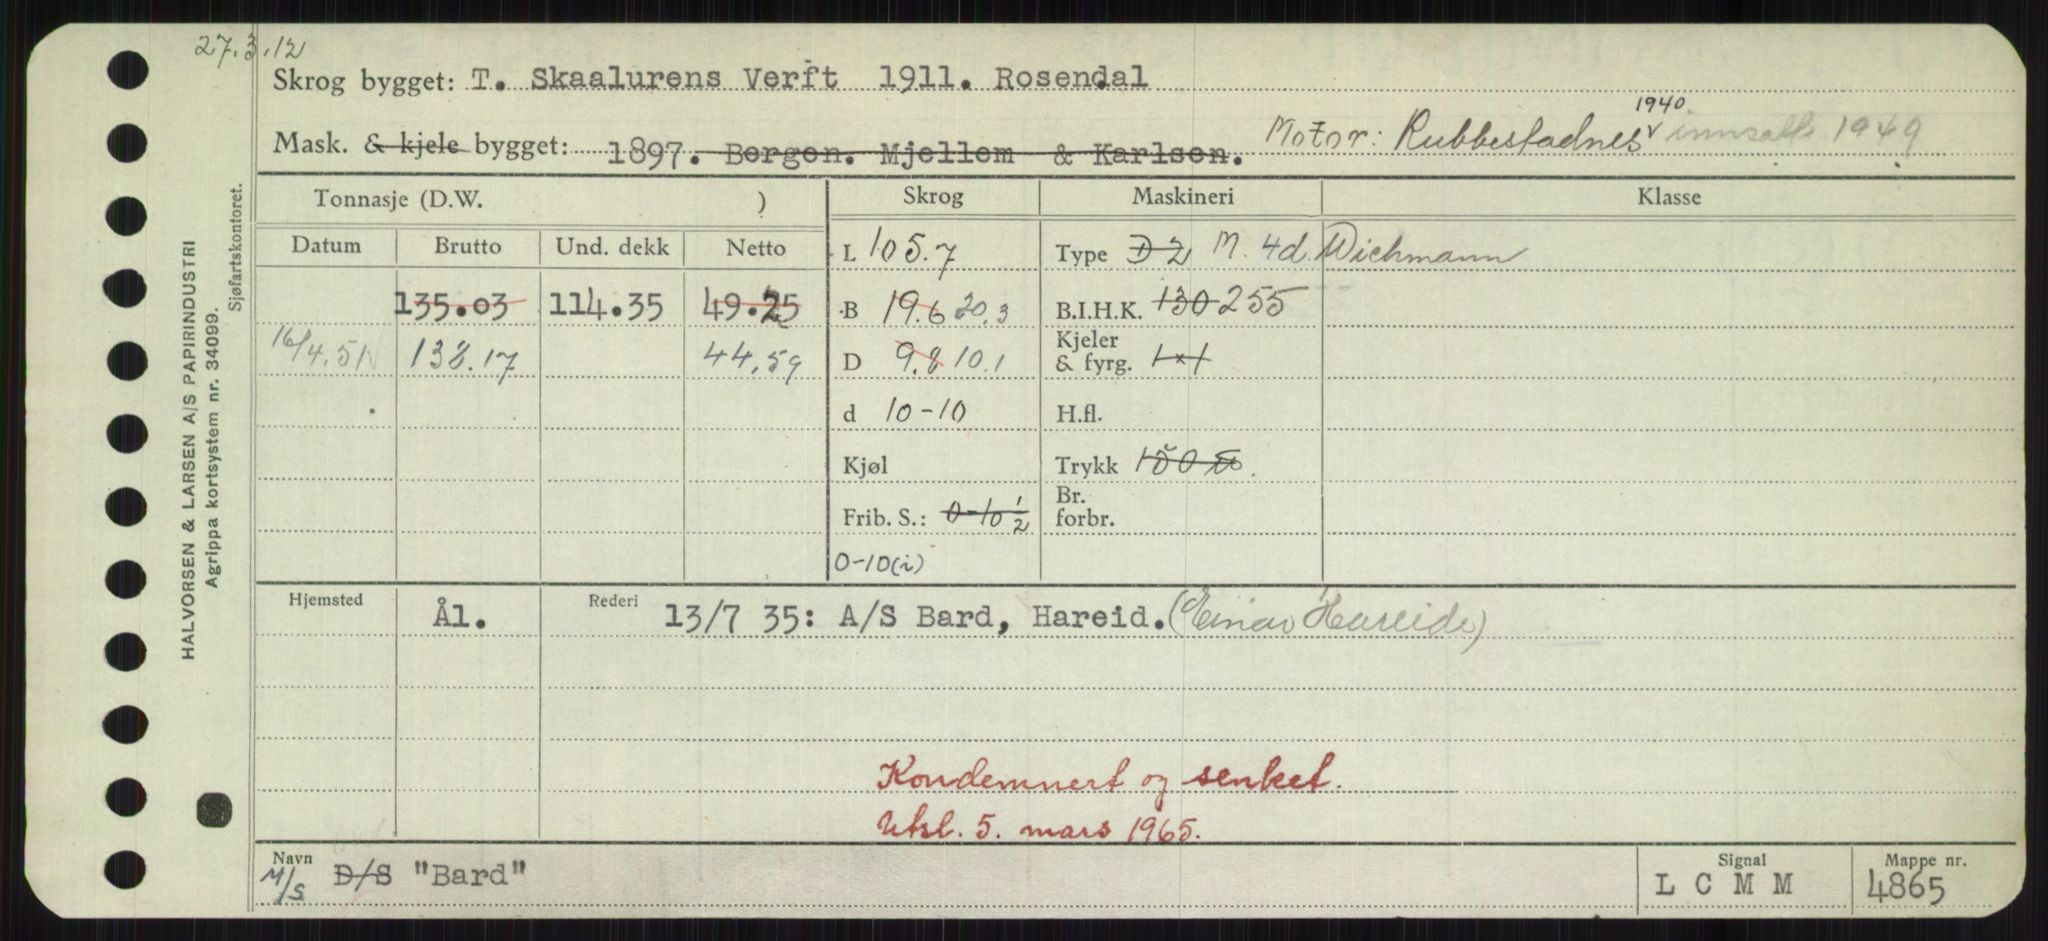 27.3.12
Skrog bygget: T. Skaalurens Verft 1911. Rosendal
Mask. & kjele bygget: 1897. Bergen. Mjellem & Karlsen. Motor: Rubbestadnes 1940 innsatt 1949
Tonnasje (D.W. ) Skrog Maskineri Klasse
Datum Brutto Und. dekk Netto L 105.7 Type D 2 M. 4d. Wichmann
135.03 114.35 49.25 B 19.6 20.3 B.I.H.K. 130 255
16/4.51 138.17 44,59 D 9.8 10.1 Kjeler & fyrg. 1x1
d 10-10 H.fl.
Kjøl Trykk 150
Frib. S.: 0-10 1/2 Br. forbr.
0-10(i)
Hjemsted Ål. Rederi 13/7 35: A/S Bard, Hareid. (Einar Hareide)
Kondemnert og senket.
Utsl. 5. mars 1965.
Navn Signal Mappe nr.
M/S D/S "Bard" L C M M 4865
HALVORSEN & LARSEN A/S PAPIRINDUSTRI
Agrippa kortsystem nr. 34099.
Sjøfartskontoret.